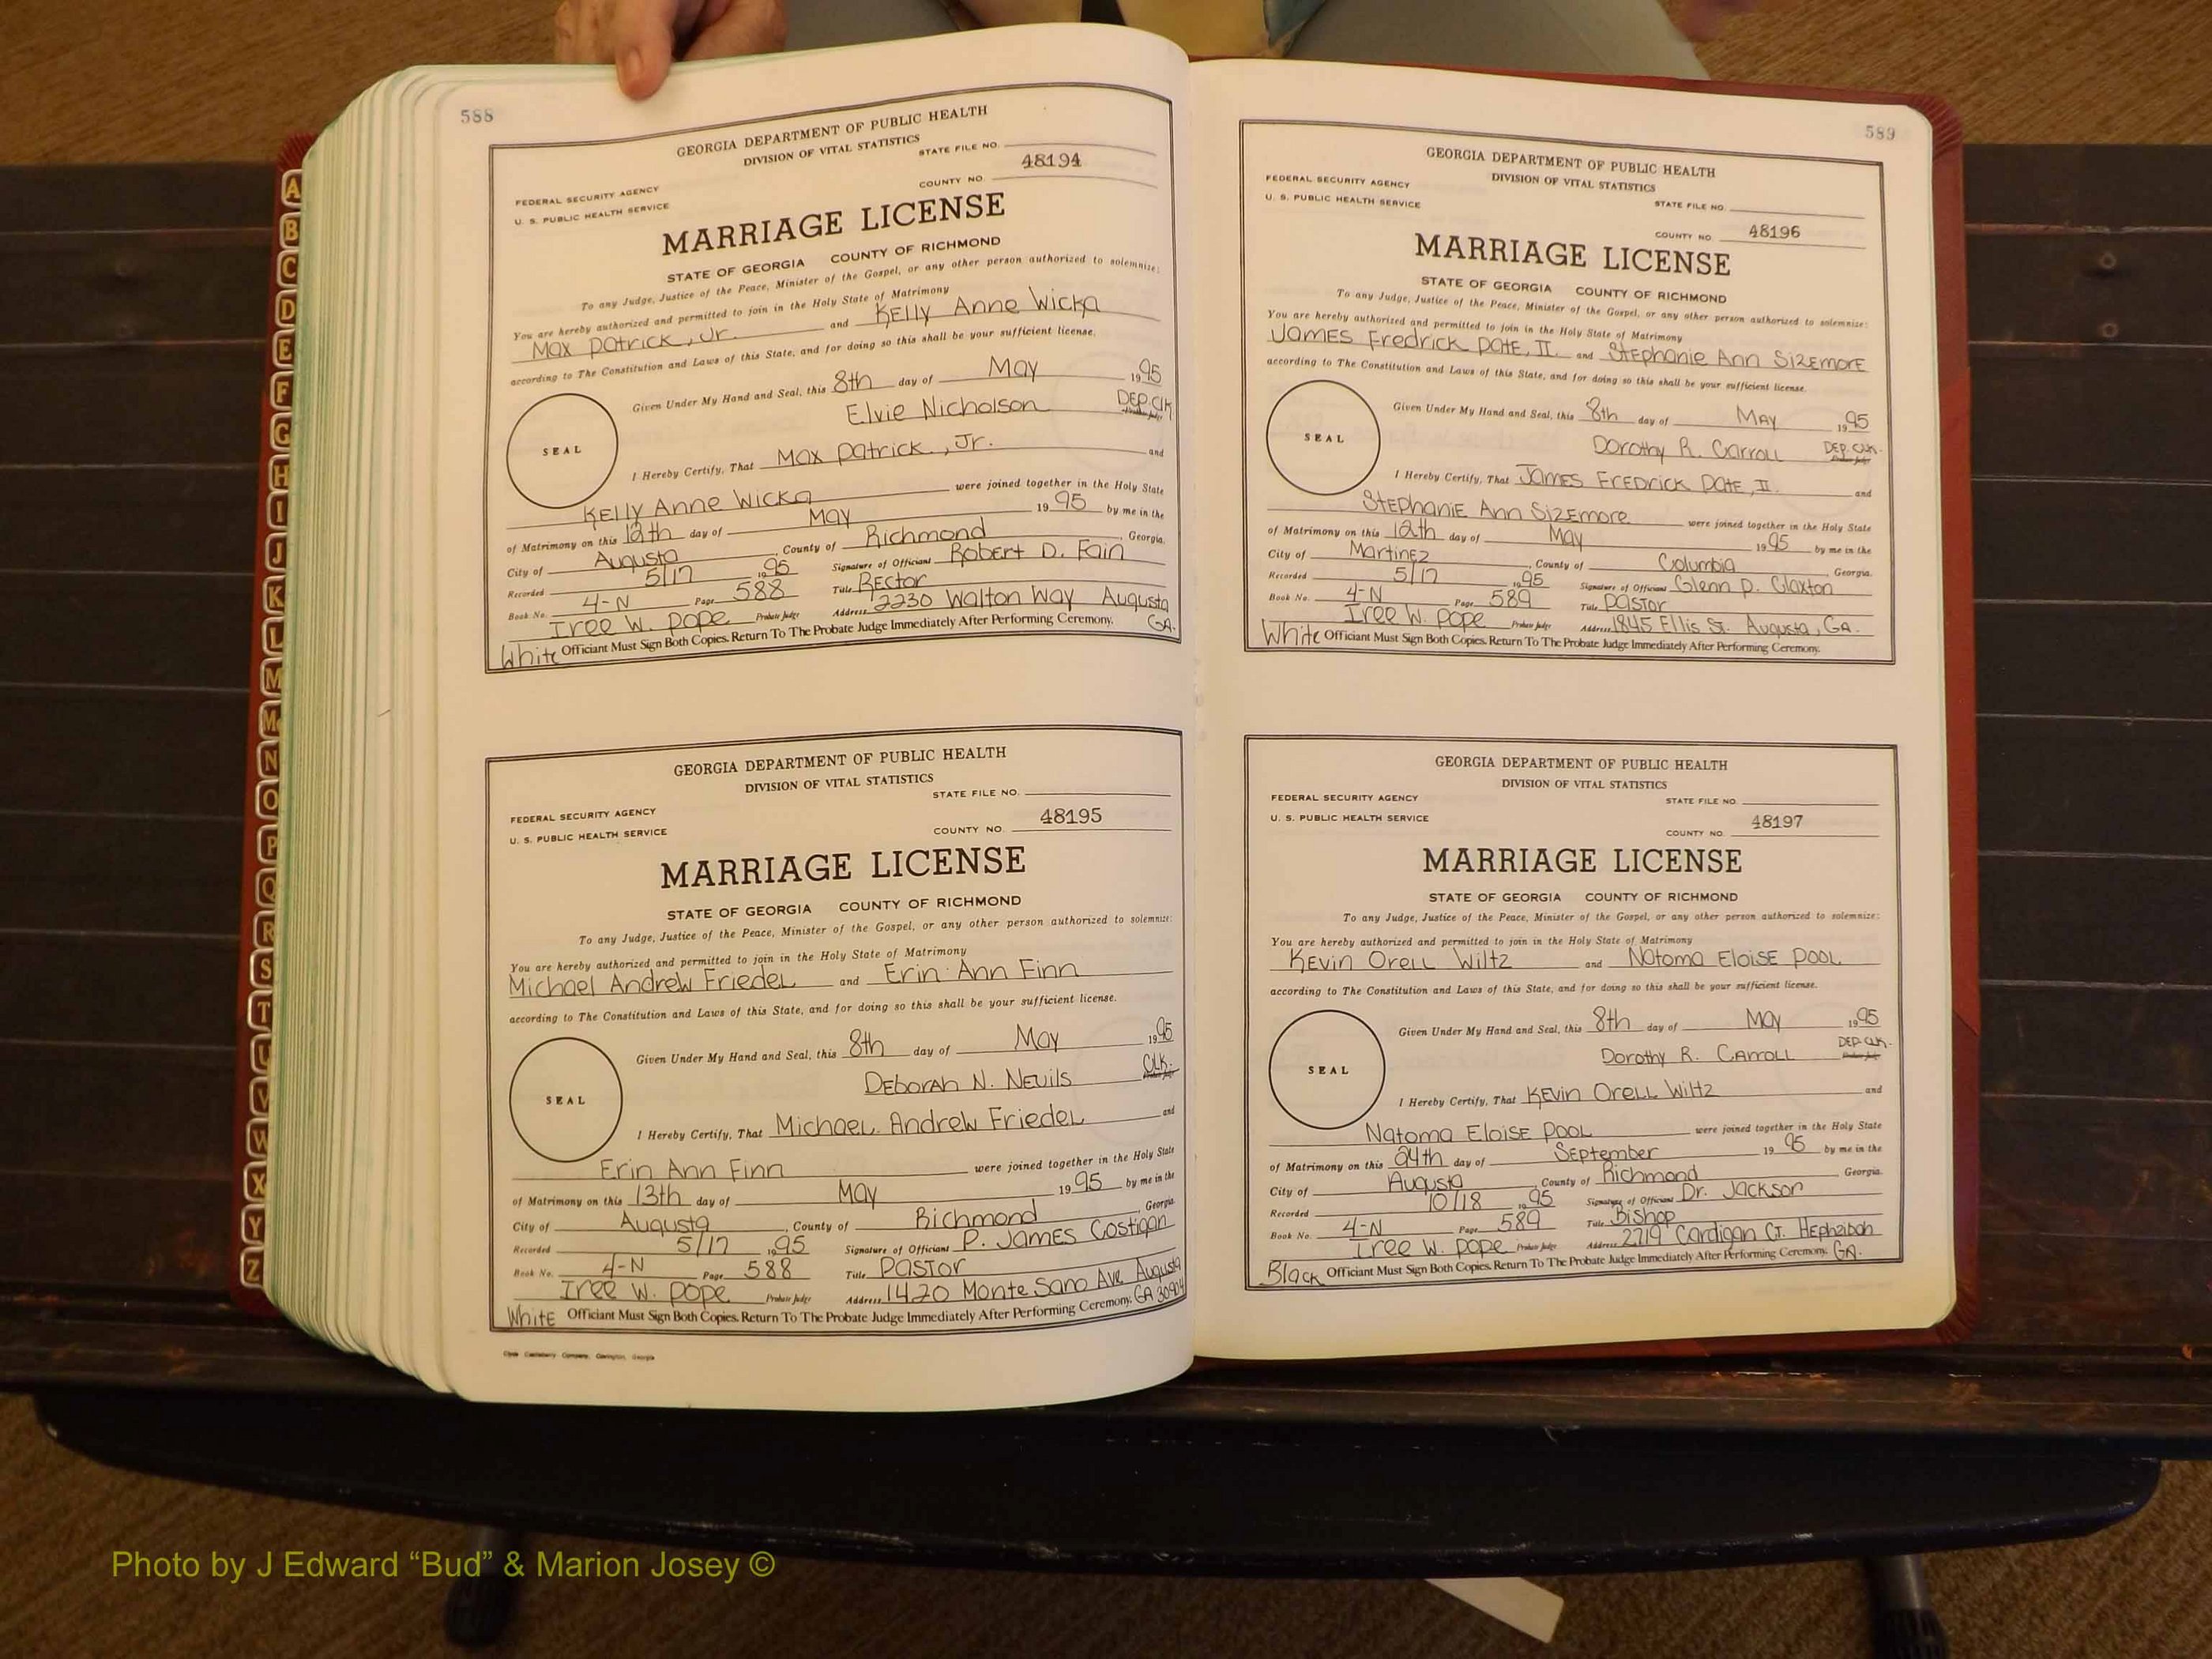 588
GEORGIA DEPARTMENT OF PUBLIC HEALTH
DIVISION OF VITAL STATISTICS
STATE FILE NO.
FEDERAL SECURITY AGENCY
COUNTY NO. 48194
U. S. PUBLIC HEALTH SERVICE
MARRIAGE LICENSE
STATE OF GEORGIA COUNTY OF RICHMOND
To any Judge, Justice of the Peace, Minister of the Gospel, or any other person authorized to solemnize:
You are hereby authorized and permitted to join in the Holy State of Matrimony
Max Patrick, Jr. and Kelly Anne Wicka
according to The Constitution and Laws of this State, and for doing so this shall be your sufficient license.
Given Under My Hand and Seal, this 8th day of May 1995
Elvie Nicholson DEP. Clk
SEAL
I Hereby Certify, That Max Patrick, Jr. and
Kelly Anne Wicka were joined together in the Holy State
of Matrimony on this 12th day of May 1995 by me in the
City of Augusta, County of Richmond, Georgia.
Recorded 5/17 1995 Signature of Officiant Robert D. Fain
Book No. 4-N Page 588 Title Rector
Iree W. Pope Probate Judge Address 2230 Walton Way Augusta GA.
White Officiant Must Sign Both Copies. Return To The Probate Judge Immediately After Performing Ceremony.
GEORGIA DEPARTMENT OF PUBLIC HEALTH
DIVISION OF VITAL STATISTICS
STATE FILE NO.
FEDERAL SECURITY AGENCY
COUNTY NO. 48195
U. S. PUBLIC HEALTH SERVICE
MARRIAGE LICENSE
STATE OF GEORGIA COUNTY OF RICHMOND
To any Judge, Justice of the Peace, Minister of the Gospel, or any other person authorized to solemnize:
You are hereby authorized and permitted to join in the Holy State of Matrimony
Michael Andrew Friedel and Erin Ann Finn
according to The Constitution and Laws of this State, and for doing so this shall be your sufficient license.
Given Under My Hand and Seal, this 8th day of May 1995
Deborah N. Nevils Clk.
SEAL
I Hereby Certify, That Michael Andrew Friedel and
Erin Ann Finn were joined together in the Holy State
of Matrimony on this 13th day of May 1995 by me in the
City of Augusta, County of Richmond, Georgia
Recorded 5/17 1995 Signature of Officiant P. James Costigan
Book No. 4-N Page 588 Title Pastor
Iree W. Pope Probate Judge Address 1420 Monte Sano Ave Augusta GA 30904
White Officiant Must Sign Both Copies. Return To The Probate Judge Immediately After Performing Ceremony.
589
GEORGIA DEPARTMENT OF PUBLIC HEALTH
DIVISION OF VITAL STATISTICS
FEDERAL SECURITY AGENCY
STATE FILE NO.
U. S. PUBLIC HEALTH SERVICE
COUNTY NO. 48196
MARRIAGE LICENSE
STATE OF GEORGIA COUNTY OF RICHMOND
To any Judge, Justice of the Peace, Minister of the Gospel, or any other person authorized to solemnize:
You are hereby authorized and permitted to join in the Holy State of Matrimony
James Fredrick Pate, II. and Stephanie Ann Sizemore
according to The Constitution and Laws of this State, and for doing so this shall be your sufficient license.
Given Under My Hand and Seal, this 8th day of May 1995
Dorothy R. Carroll DEP. Clk.
SEAL
I Hereby Certify, That James Fredrick Pate, II. and
Stephanie Ann Sizemore were joined together in the Holy State
of Matrimony on this 12th day of May 1995 by me in the
City of Martinez, County of Columbia, Georgia.
Recorded 5/17 1995 Signature of Officiant Glenn D. Claxton
Book No. 4-N Page 589 Title Pastor
Iree W. Pope Probate Judge Address 1845 Ellis St. Augusta, GA.
White Officiant Must Sign Both Copies. Return To The Probate Judge Immediately After Performing Ceremony.
GEORGIA DEPARTMENT OF PUBLIC HEALTH
DIVISION OF VITAL STATISTICS
FEDERAL SECURITY AGENCY
STATE FILE NO.
U. S. PUBLIC HEALTH SERVICE
COUNTY NO. 48197
MARRIAGE LICENSE
STATE OF GEORGIA COUNTY OF RICHMOND
To any Judge, Justice of the Peace, Minister of the Gospel, or any other person authorized to solemnize:
You are hereby authorized and permitted to join in the Holy State of Matrimony
Kevin Orell Wiltz and Natoma Eloise Pool
according to The Constitution and Laws of this State, and for doing so this shall be your sufficient license.
Given Under My Hand and Seal, this 8th day of May 1995
Dorothy R. Carroll DEP. Clk.
SEAL
I Hereby Certify, That Kevin Orell Wiltz and
Natoma Eloise Pool were joined together in the Holy State
of Matrimony on this 24th day of September 1995 by me in the
City of Augusta, County of Richmond Georgia.
Recorded 10/18 1995 Signature of Officiant Dr. Jackson
Book No. 4-N Page 589 Title Bishop
Iree W. Pope Probate Judge Address 2719 Cardigan Ct. Hephzibah GA.
Black Officiant Must Sign Both Copies. Return To The Probate Judge Immediately After Performing Ceremony.
A
B
C
D
E
F
G
H
I
J
K
L
M
Mc
N
O
P
Q
R
S
T
U
V
W
X
Y
Z
Photo by J Edward “Bud” & Marion Josey ©